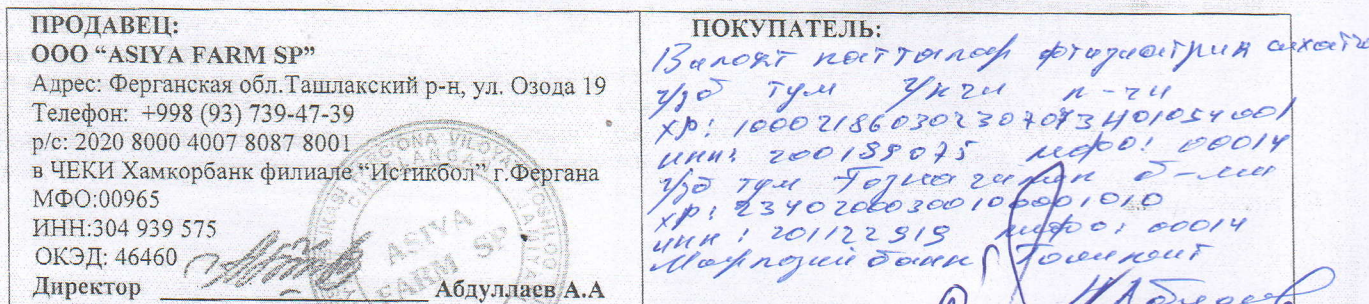 ПРОДАВЕЦ:
ООО “ASIYA FARM SP”
Адрес: Ферганская обл.Ташлакский р-н, ул. Озода 19
Телефон: +998 (93) 739-47-39
р/с: 2020 8000 4007 8087 8001
в ЧЕКИ Хамкорбанк филиале “Истикбол” г.Фергана
МФО:00965
ИНН:304 939 575
ОКЭД: 46460
Директор Абдуллаев А.А
ASIYA
FARM SP
ПОКУПАТЕЛЬ:
Вилоят
Узб тум
хр:
инн: 200189075 мфо: 00014
Узб тум б-ми
хр: 23402000300100001010
инн: 201122919 мфо: 00014
Марказий банк Тошкент